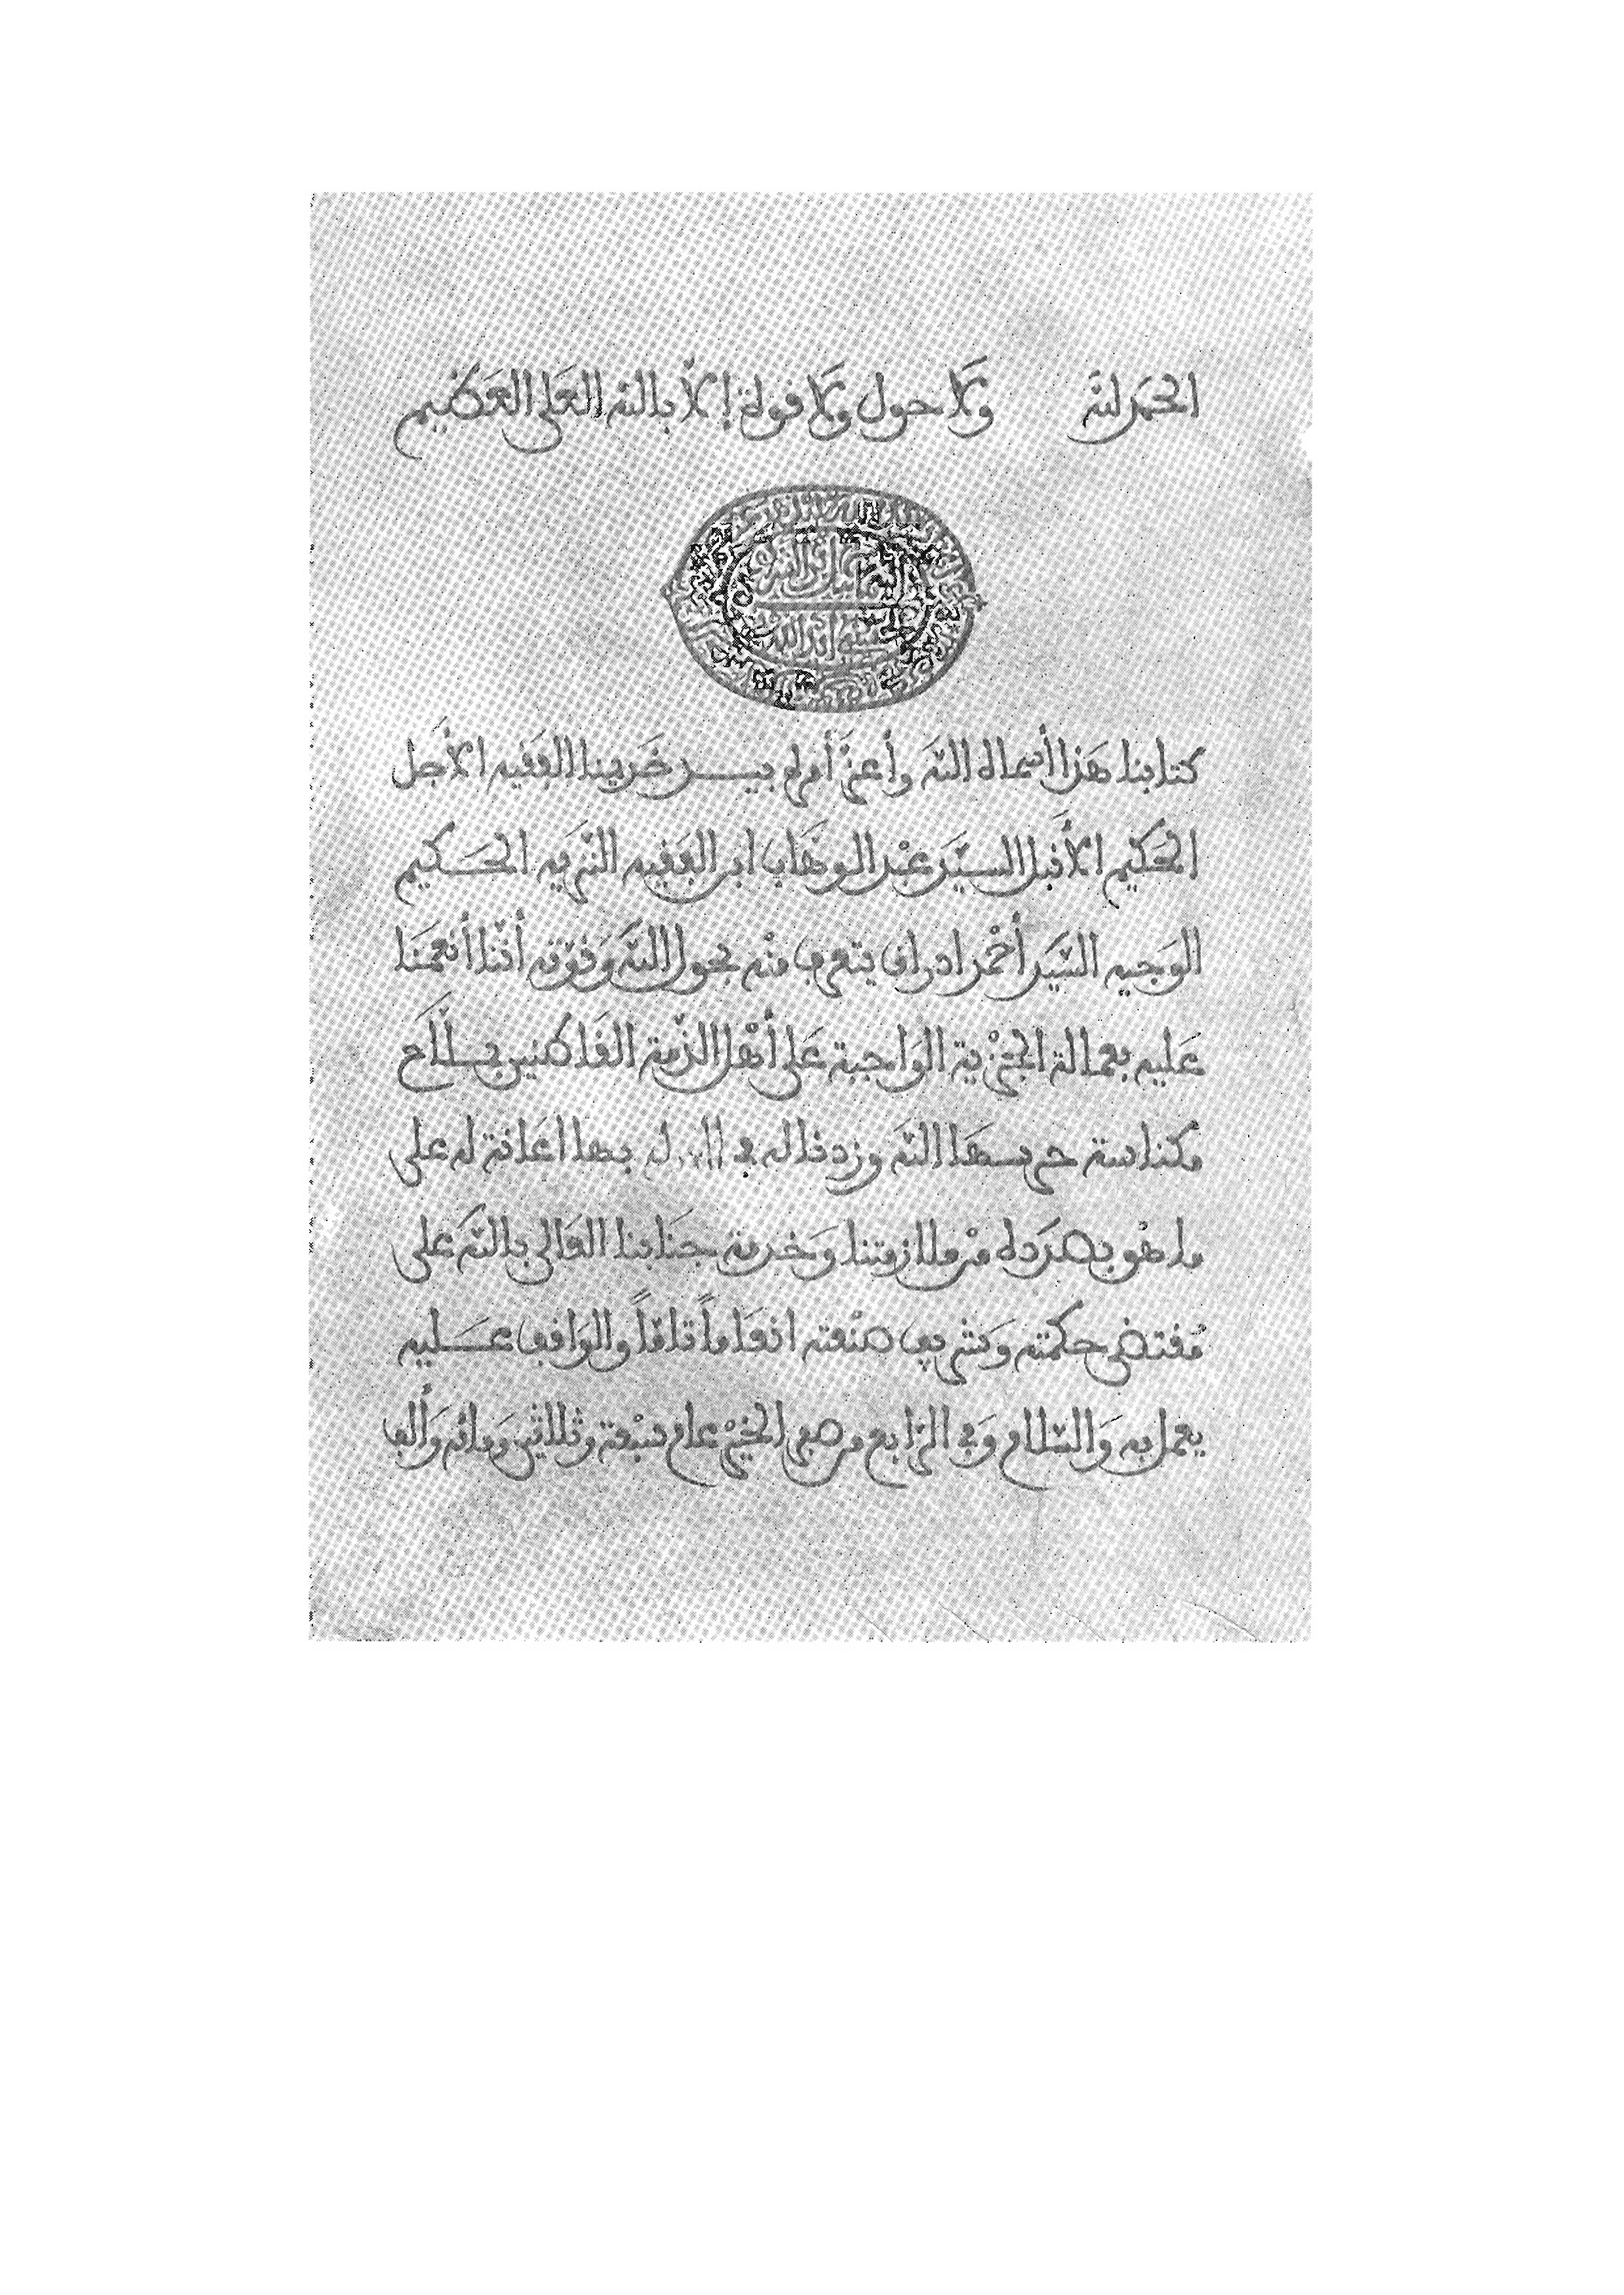 الحمد لله ولا حول ولا قوة إلا بالله العلي العظيم
كتابنا هذا أسماه الله وأعز أمره بيد خديمنا الفقيه الأجل
الحكيم الأقبل السيد عبد الوهاب ابن الفقيه النزيه الحكيم
الوجيه السيد أحمد ادراق يتعرف منه بحول الله وقوته أننا أنعمنا
عليه بعمالة الجزية الواجبة على أهل الذمة القاطنين بملاح
مكناسة حرسها الله وزدناله في بها اعانة له على
ما هو بصدده من ملازمتنا وخدمة جنابنا العالي بالله على
مقتضى حكمته وشريف صنعته انعاماً تاماً والواقف عليه
يعمل به والسلام وفي الرابع من صفر الخير عام سبعة وثلاثين ومائة وألف